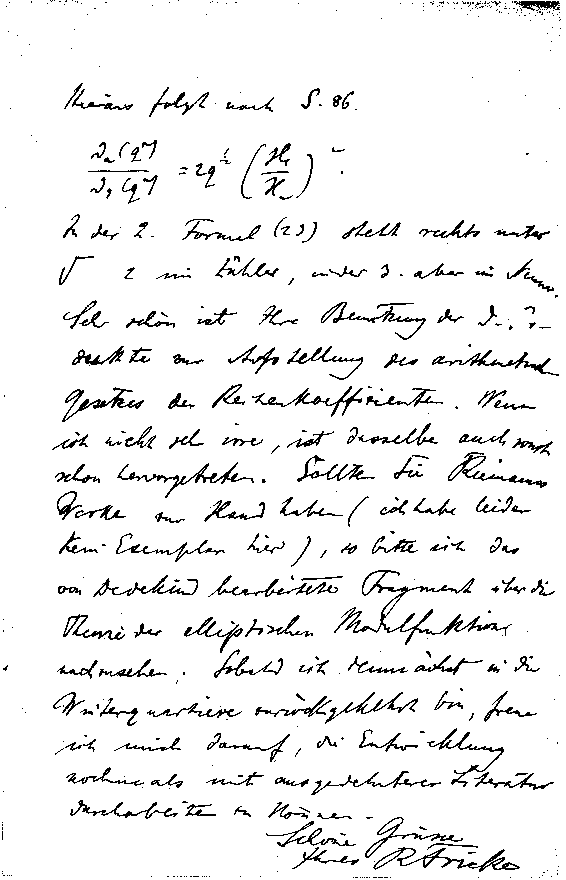 Hieraus folgt nach S. 86.
ϑ₂(q²) / ϑ₃(q²) = 2q^½ (H₁/H)².
In der 2. Formel (23) steht rechts unter
√ 2 im Zähler, in der 3. aber im Nenner.
Sehr schön ist Ihre Benutzung der
zur Aufstellung des arithmetischen
Gesetzes der Reihenkoeffizienten. Wenn
ich nicht sehr irre, ist dasselbe auch sonst
schon hervorgetreten. Sollten Sie Riemanns
Werke zur Hand haben (ich habe leider
kein Exemplar hier), so bitte ich das
von Dedekind bearbeitete Fragment über die
Theorie der elliptischen Modulfunktionen
nachzusehen. Sobald ich demnächst in die
Winterquartiere zurückgekehrt bin, freue
ich mich darauf, die Entwicklung
nochmals mit ausgedehnterer Literatur
durcharbeiten zu können.
Schöne Grüsse
Ihres R Fricke